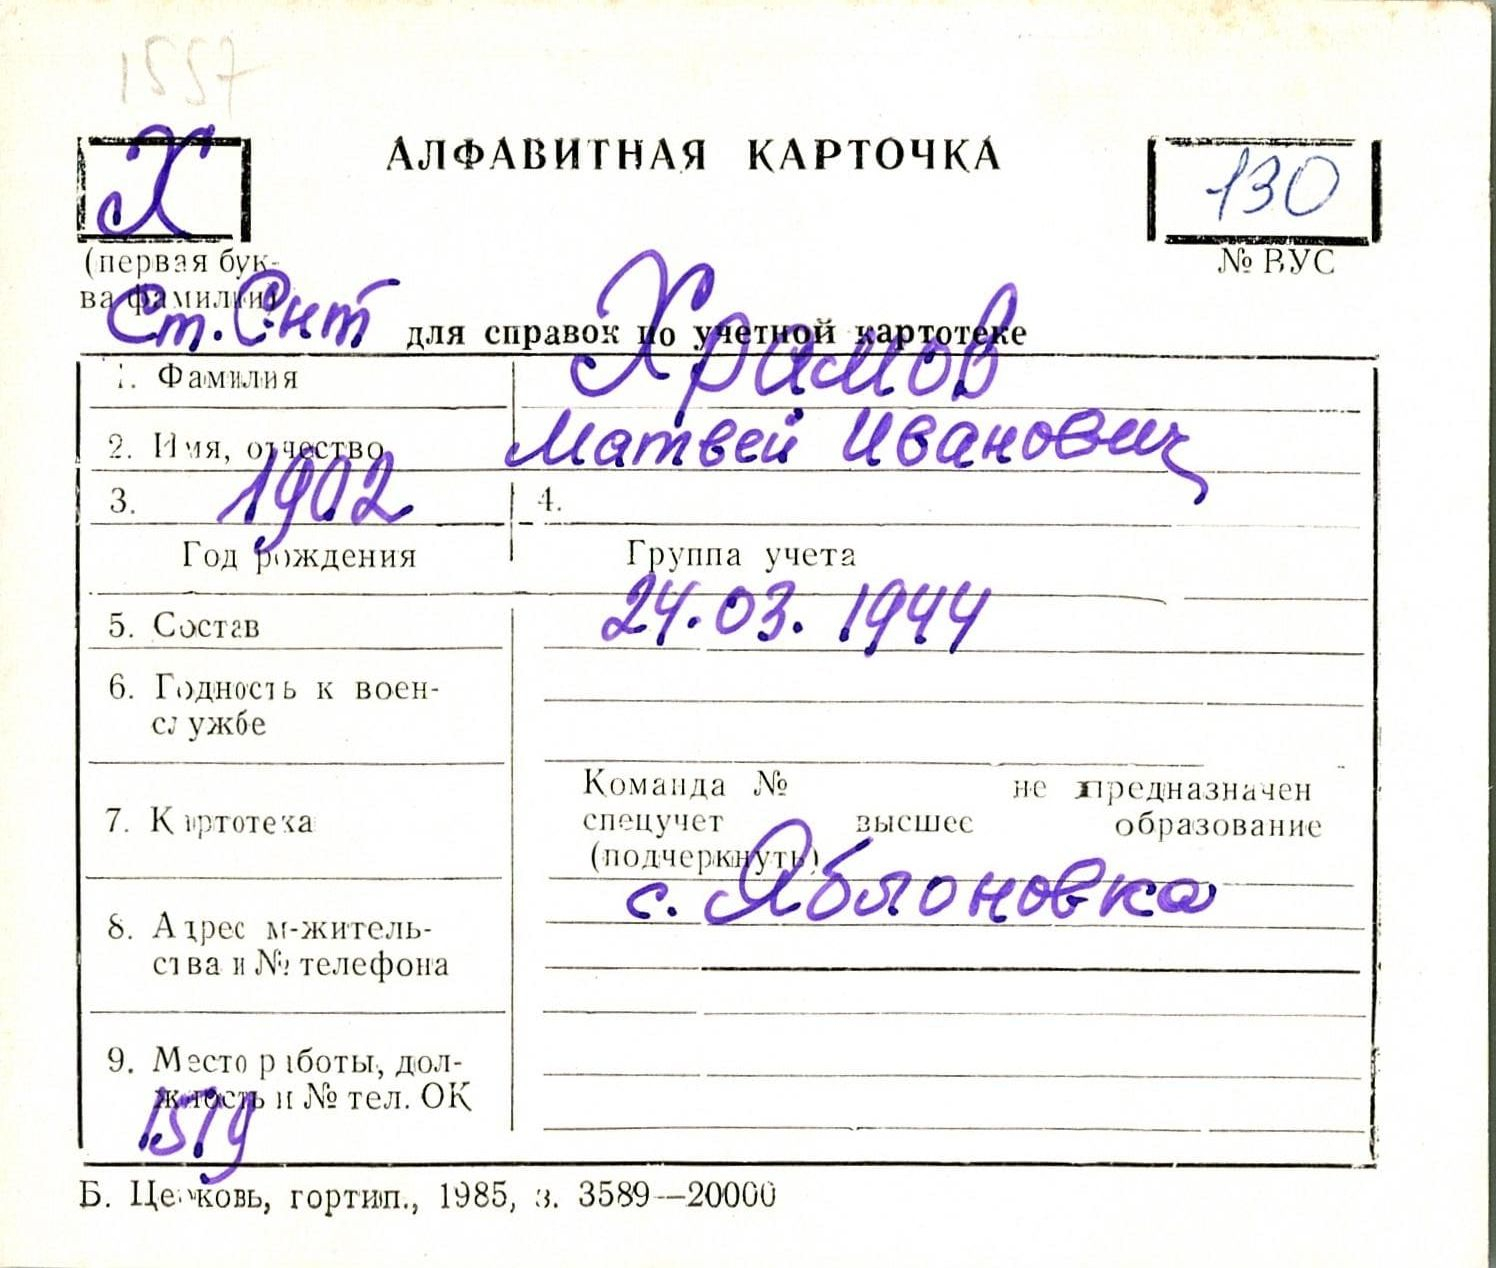 1557
Х
АЛФАВИТНАЯ КАРТОЧКА
130
(первая бук-
ва фамилии)
№ ВУС
Ст. Снт
для справок по учетной картотеке
1. Фамилия Храмов
2. Имя, отчество Матвей Иванович
3. 1902 4.
Год рождения Группа учета
5. Состав 24.03.1944
6. Годность к воен-
службе
7. Картотека
Команда № не предназначен
спецучет высшее образование
(подчеркнуть)
с. Яблоновка
8. Адрес м-житель-
ства и № телефона
9. Место работы, дол-
жность и № тел. ОК
1519
Б. Церковь, гортип., 1985, з. 3589—20000